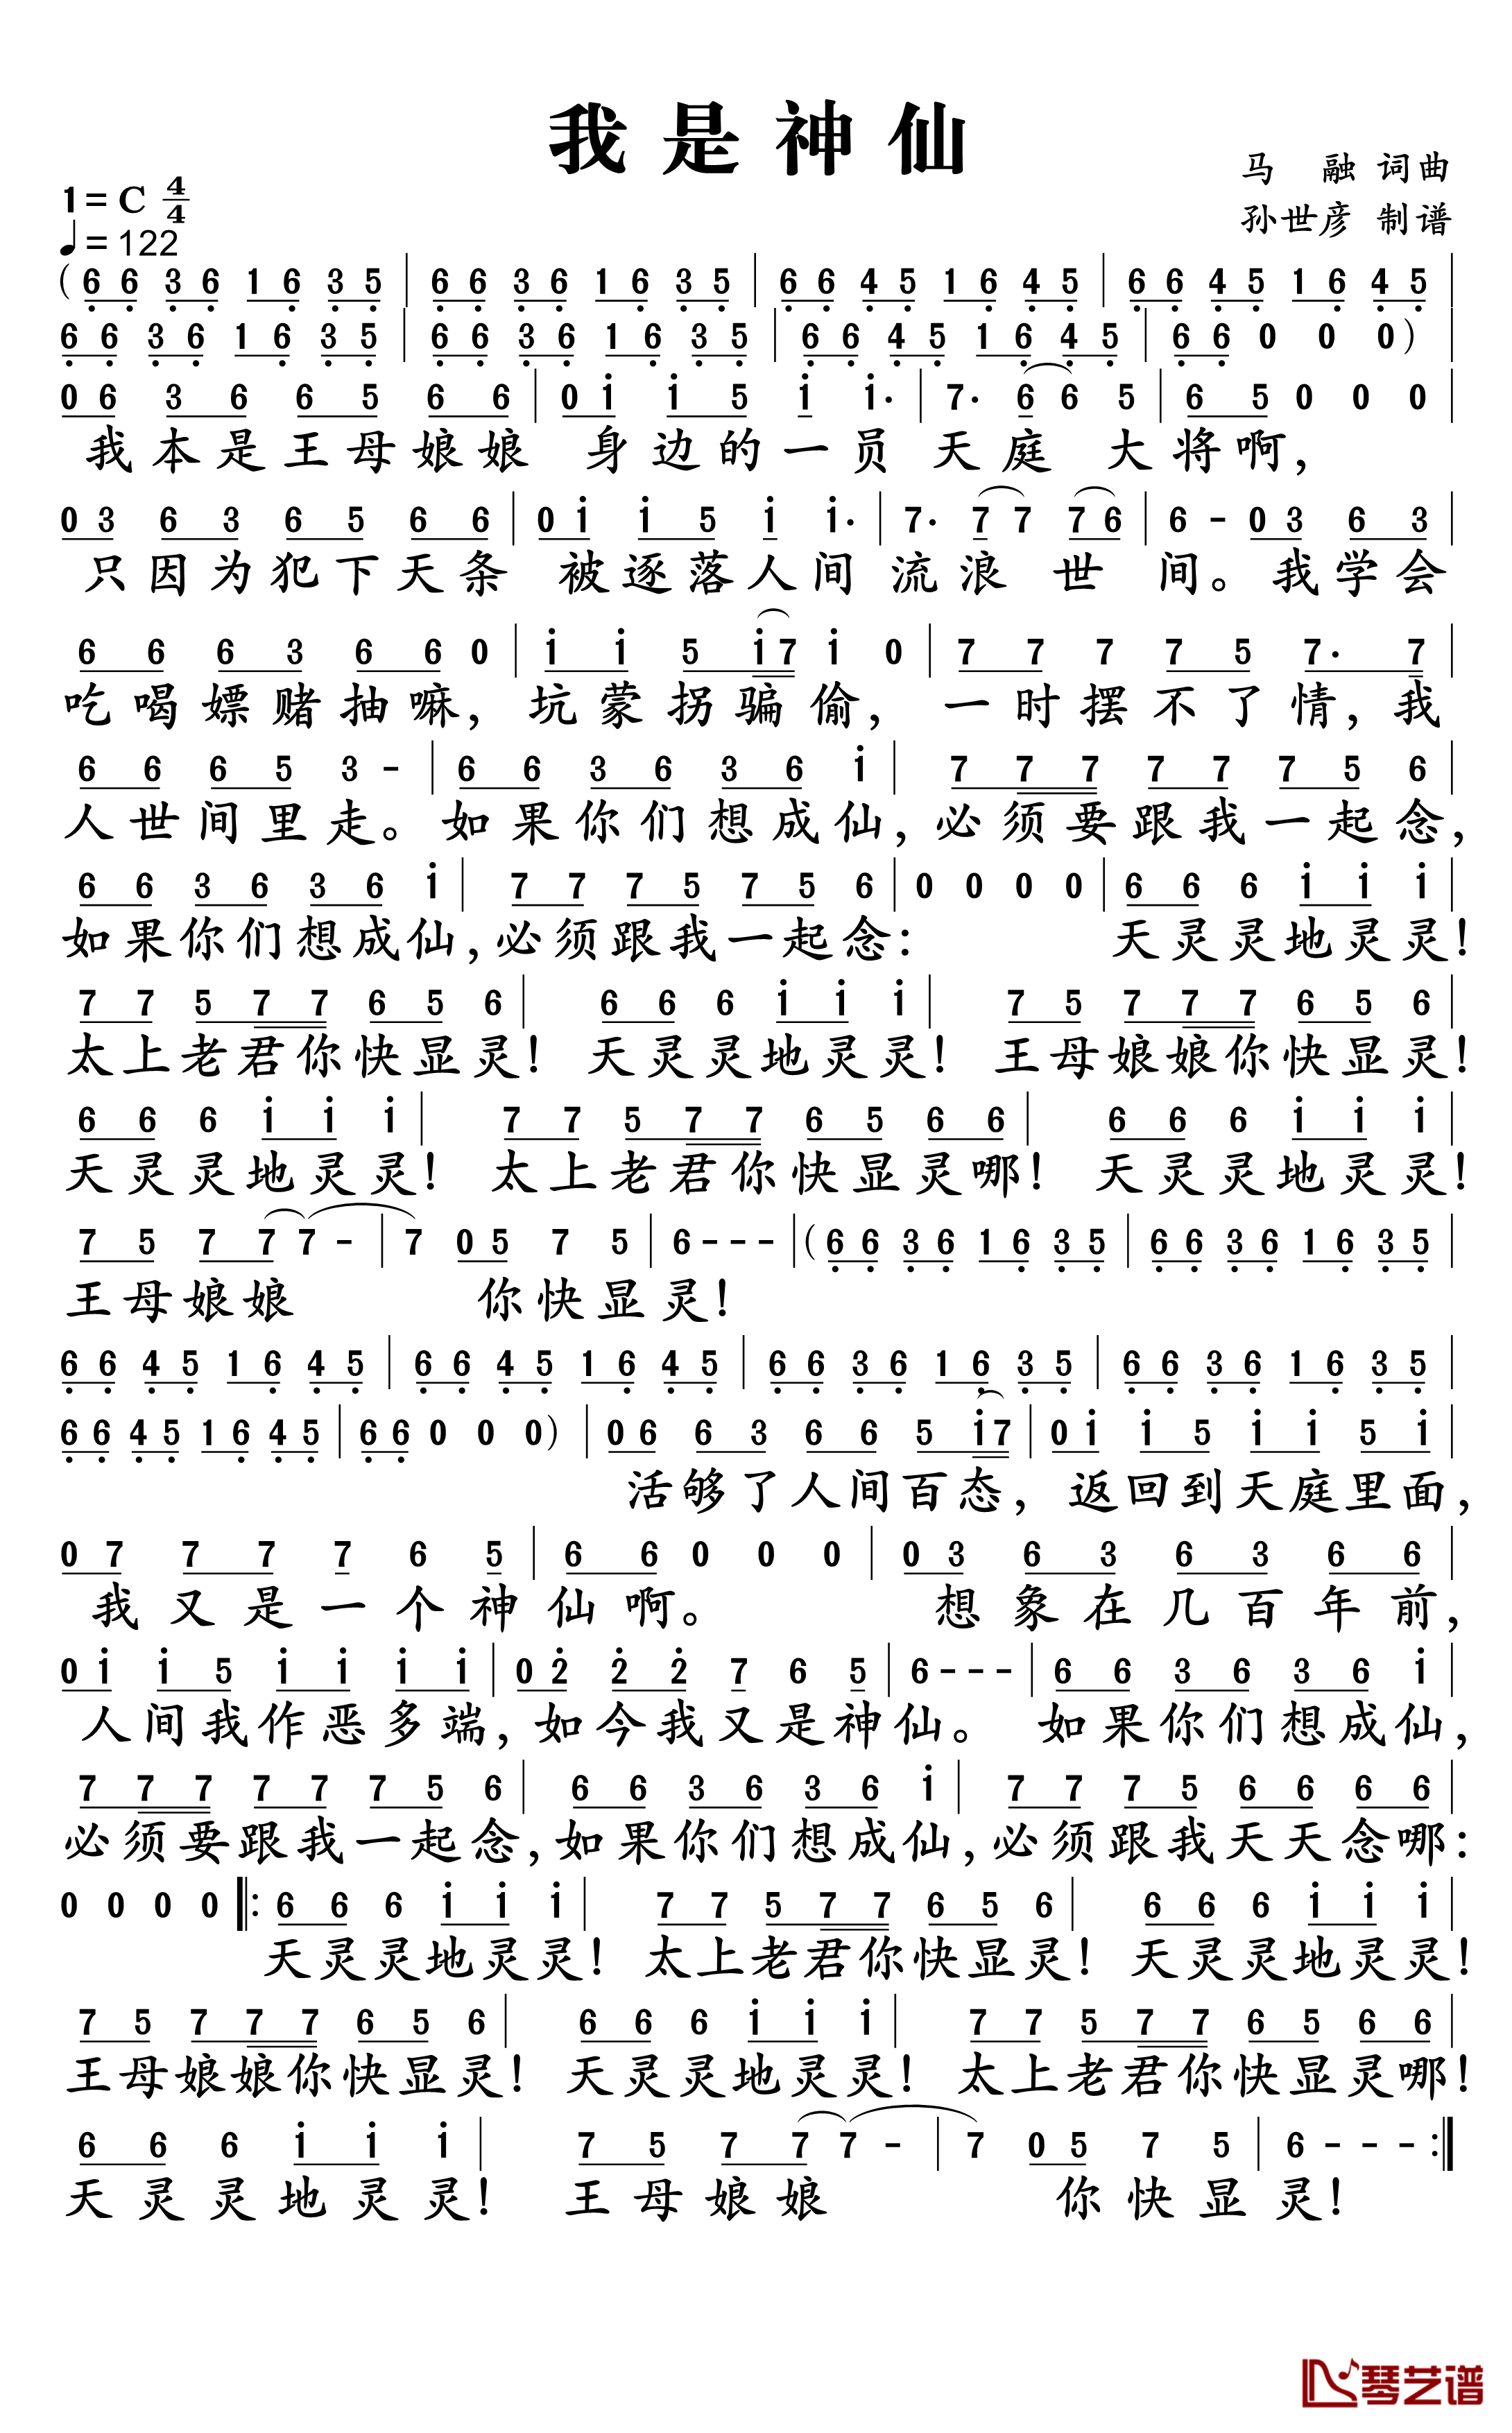 我是神仙
马 融 词曲
1=C 4/4
孙世彦 制谱
♩=122
(6̣6̣ 3̣6̣ 16̣ 3̣5̣ | 6̣6̣ 3̣6̣ 16̣ 3̣5̣ | 6̣6̣ 4̣5̣ 16̣ 4̣5̣ | 6̣6̣ 4̣5̣ 16̣ 4̣5̣ |
6̣6̣ 3̣6̣ 16̣ 3̣5̣ | 6̣6̣ 3̣6̣ 16̣ 3̣5̣ | 6̣6̣ 4̣5̣ 16̣ 4̣5̣ | 6̣6̣ 0 0 0) |
06 36 65 66 | 0i i5 i i· | 7· 6 6 5 | 65 0 0 0 |
我本是王母娘娘 身边的一员天庭 大将啊,
03 63 65 66 | 0i i5 i i· | 7· 7 7 76 | 6 - 03 63 |
只因为犯下天条 被逐落人间流浪 世 间。我学会
66 63 66 0 | ii 5i7 i 0 | 77 7 75 7· 7 |
吃喝嫖赌抽嘛,坑蒙拐骗偷,一时摆不了情,我
66 65 3 - | 66 36 36 i | 777 77 75 6 |
人世间里走。如果你们想成仙,必须要跟我一起念,
66 36 36 i | 77 75 75 6 | 0 0 0 0 | 66 6 ii i |
如果你们想成仙,必须跟我一起念: 天灵灵地灵灵!
77 577 65 6 | 66 6 ii i | 75 777 65 6 |
太上老君你快显灵! 天灵灵地灵灵! 王母娘娘你快显灵!
66 6 ii i | 77 577 65 66 | 66 6 ii i |
天灵灵地灵灵! 太上老君你快显灵哪! 天灵灵地灵灵!
75 77 7 - | 7 05 7 5 | 6 - - - | (6̣6̣ 3̣6̣ 16̣ 3̣5̣ | 6̣6̣ 3̣6̣ 16̣ 3̣5̣ |
王母娘娘 你快显灵!
6̣6̣ 4̣5̣ 16̣ 4̣5̣ | 6̣6̣ 4̣5̣ 16̣ 4̣5̣ | 6̣6̣ 3̣6̣ 16̣ 3̣5̣ | 6̣6̣ 3̣6̣ 16̣ 3̣5̣ |
6̣6̣ 4̣5̣ 16̣ 4̣5̣ | 6̣6̣ 0 0 0) | 06 63 66 5i7 | 0i i5 ii 5i |
活够了人间百态,返回到天庭里面,
07 77 7 6 5 | 66 0 0 0 | 03 63 63 66 |
我又是一个神仙啊。 想象在几百年前,
0i i5 ii ii | 02̇ 2̇2̇ 7 6 5 | 6 - - - | 66 36 36 i |
人间我作恶多端,如今我又是神仙。 如果你们想成仙,
777 77 75 6 | 66 36 36 i | 77 75 66 66 |
必须要跟我一起念,如果你们想成仙,必须跟我天天念哪:
0 0 0 0 ‖: 66 6 ii i | 77 577 65 6 | 66 6 ii i |
天灵灵地灵灵! 太上老君你快显灵! 天灵灵地灵灵!
75 777 65 6 | 66 6 ii i | 77 577 65 66 |
王母娘娘你快显灵! 天灵灵地灵灵! 太上老君你快显灵哪!
66 6 ii i | 75 77 7 - | 7 05 7 5 | 6 - - - :‖
天灵灵地灵灵! 王母娘娘 你快显灵!
琴艺谱